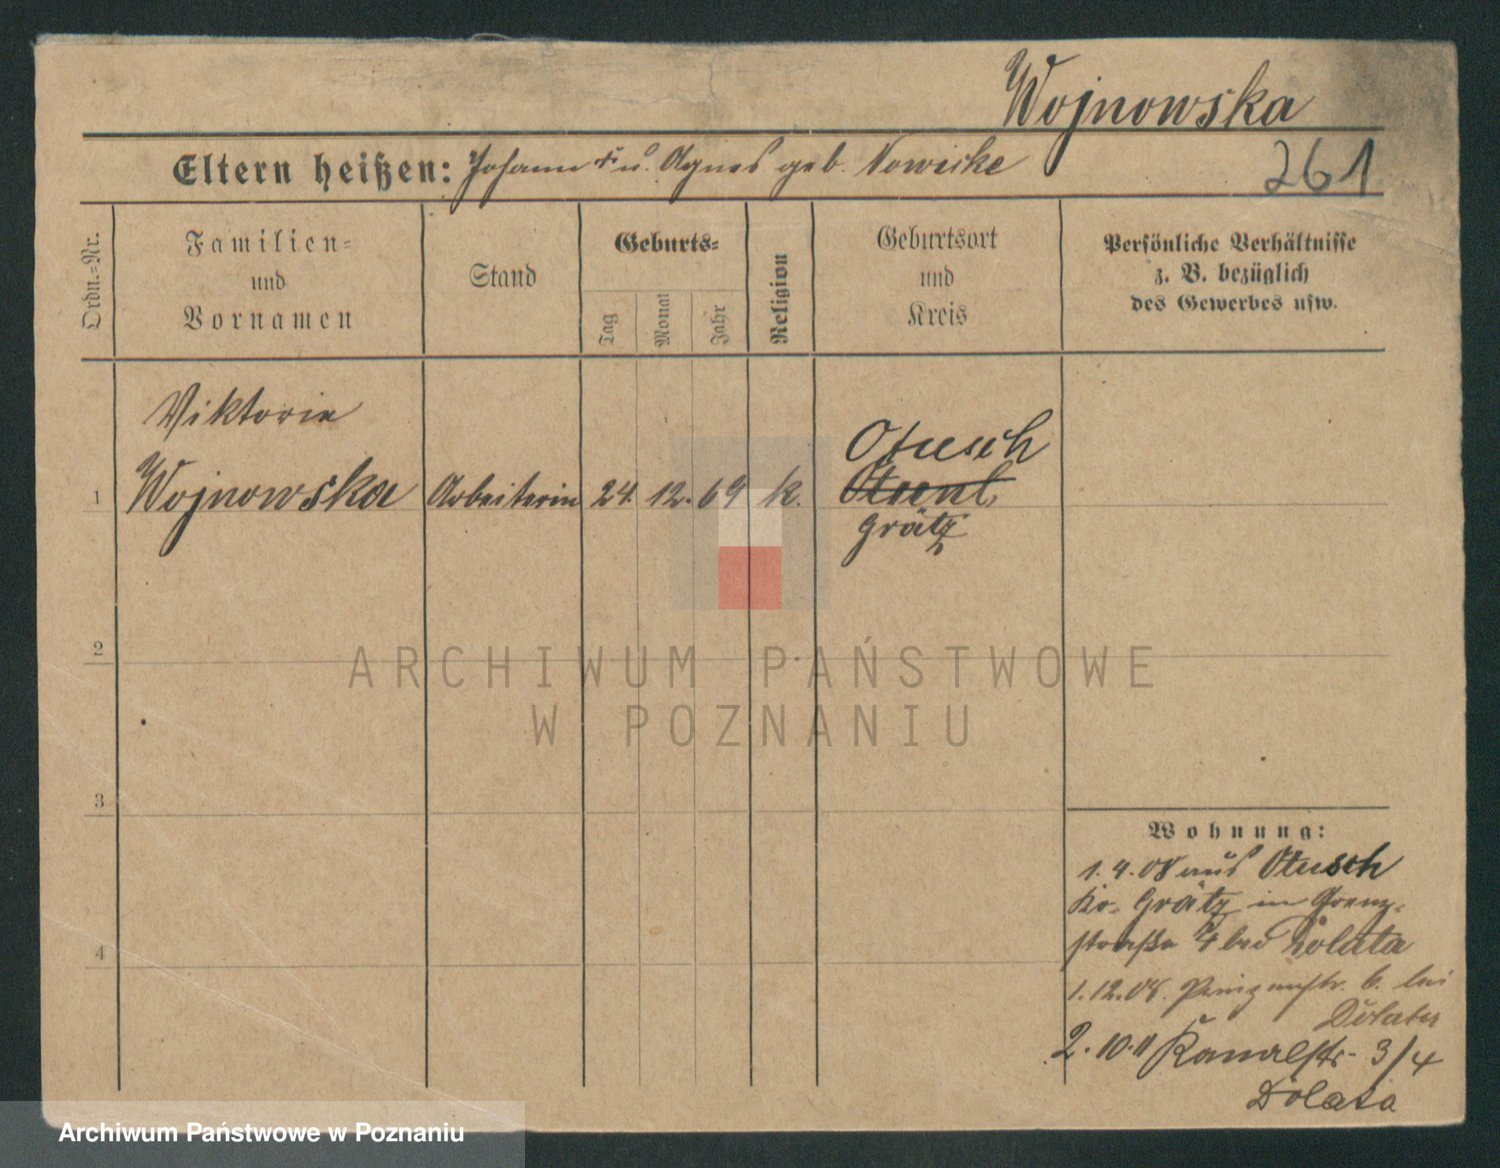 Wojnowska
Eltern heißen: Johann + u. Agnes geb. Nowicke
261
Ordn.=Nr.
Familien=
und
Vornamen
Stand
Geburts=
Tag
Monat
Jahr
Religion
Geburtsort
und
Kreis
Persönliche Verhältnisse
z. B. bezüglich
des Gewerbes usw.
Viktoria
1 Wojnowska Arbeiterin 24. 12. 69 k.
Otusch
Grätz
2
3
4
Wohnung:
1. 4. 08 aus Otusch
Kr. Grätz in Grenz-
straße 4 bei Dolata
1. 12. 08. Prinzenstr. 6. bei
Dolata
2. 10. 11 Kanalstr. 3/4
Dolata
ARCHIWUM PAŃSTWOWE
W POZNANIU
Archiwum Państwowe w Poznaniu